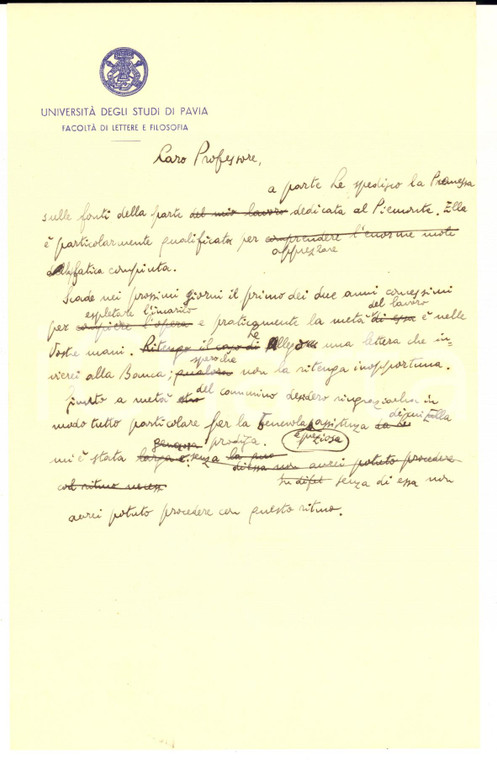 UNIVERSITÀ DEGLI STUDI DI PAVIA
FACOLTÀ DI LETTERE E FILOSOFIA
Caro Professore,
a parte Le spedisco la Premessa
sulle fonti della parte del mio lavoro dedicata al Piemonte. Ella
è particolarmente qualificata per comprendere l'enorme mole
apprezzare
fatica compiuta.
Scade nei prossimi giorni il primo dei due anni concessimi
espletare l'incarico del lavoro
per compiere l'opera e praticamente la metà di essa è nelle
Le
Vostre mani. Ritengo il caso di una lettera che in-
spero che
vierei alla Banca; qualora non la ritenga inopportuna.
Giunto a metà del cammino desidero ringraziarLa in
modo tutto particolare per la benevola assistenza di cui Ella
generosa prodiga. e preziosa
mi è stata larga e senza la sua
di essa non avrei potuto procedere
col ritmo senza di essa non
avrei potuto procedere con questo ritmo.